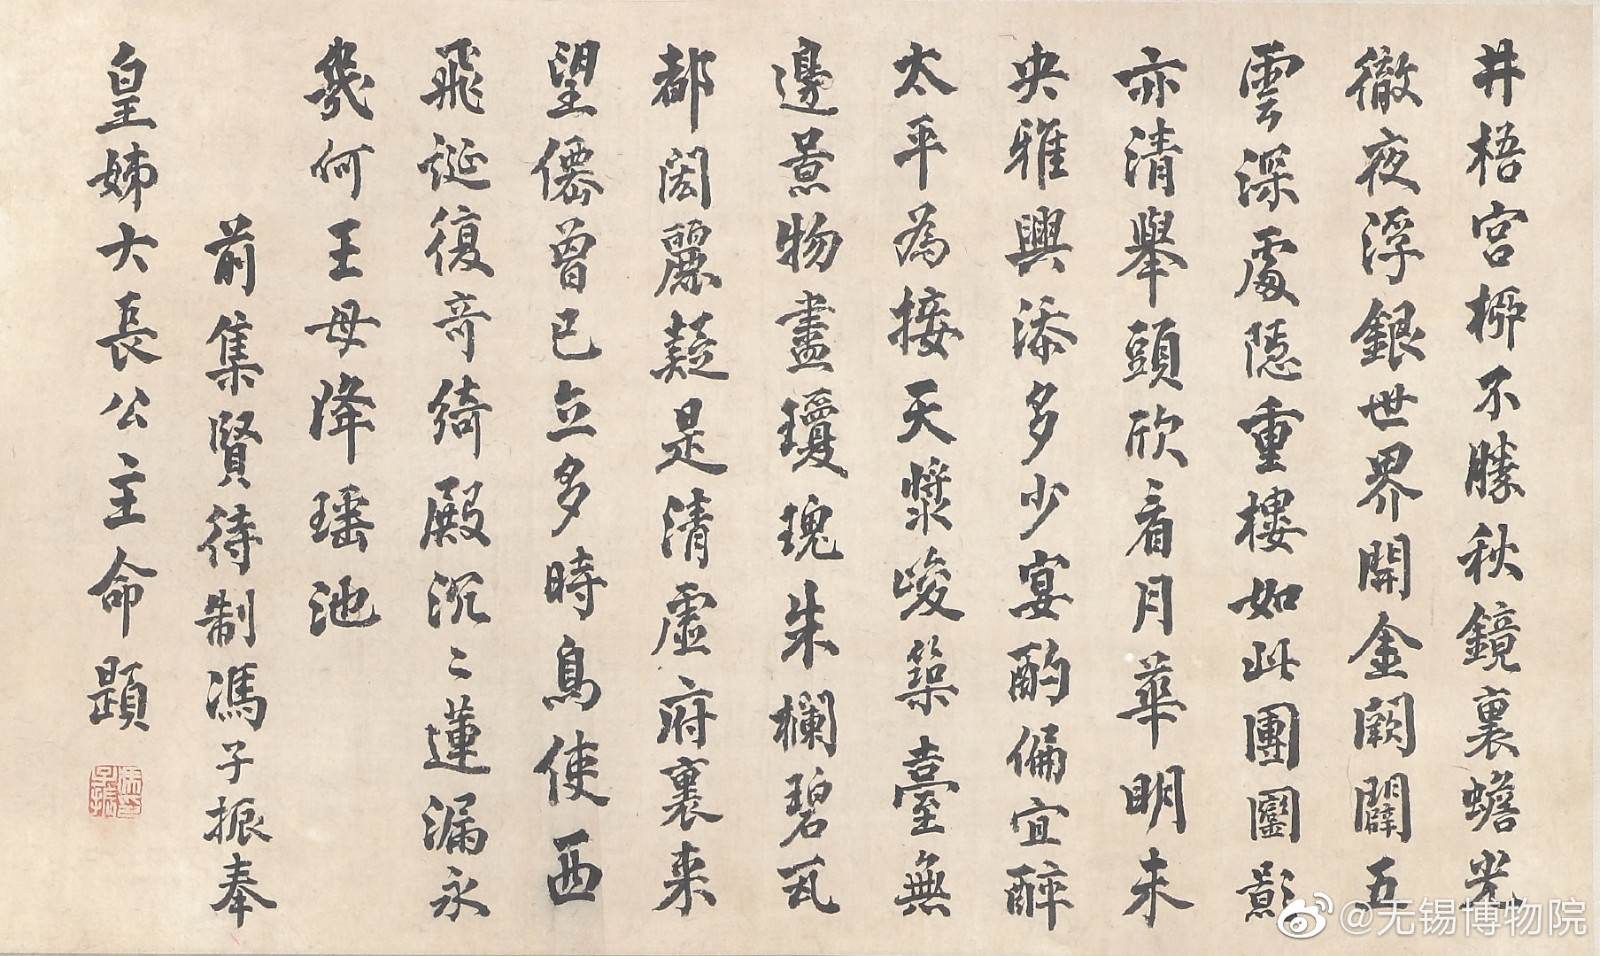 井梧宮柳不勝秋鏡裏蟾光
徹夜浮銀世界開金闕闢五
雲深處隱重樓如此團圞影
亦清舉頭欣看月華明未
央雅興添多少宴酌偏宜醉
太平為接天漿峻築臺無
邊景物盡瓊瑰朱欄碧瓦
都閎麗疑是清虛府裏来
望僊曾已立多時鳥使西
飛誕復奇綺殿沉〻蓮漏永
幾何王母降瑶池
前集賢待制馮子振奉
皇姊大長公主命題
馮子振
@无锡博物院